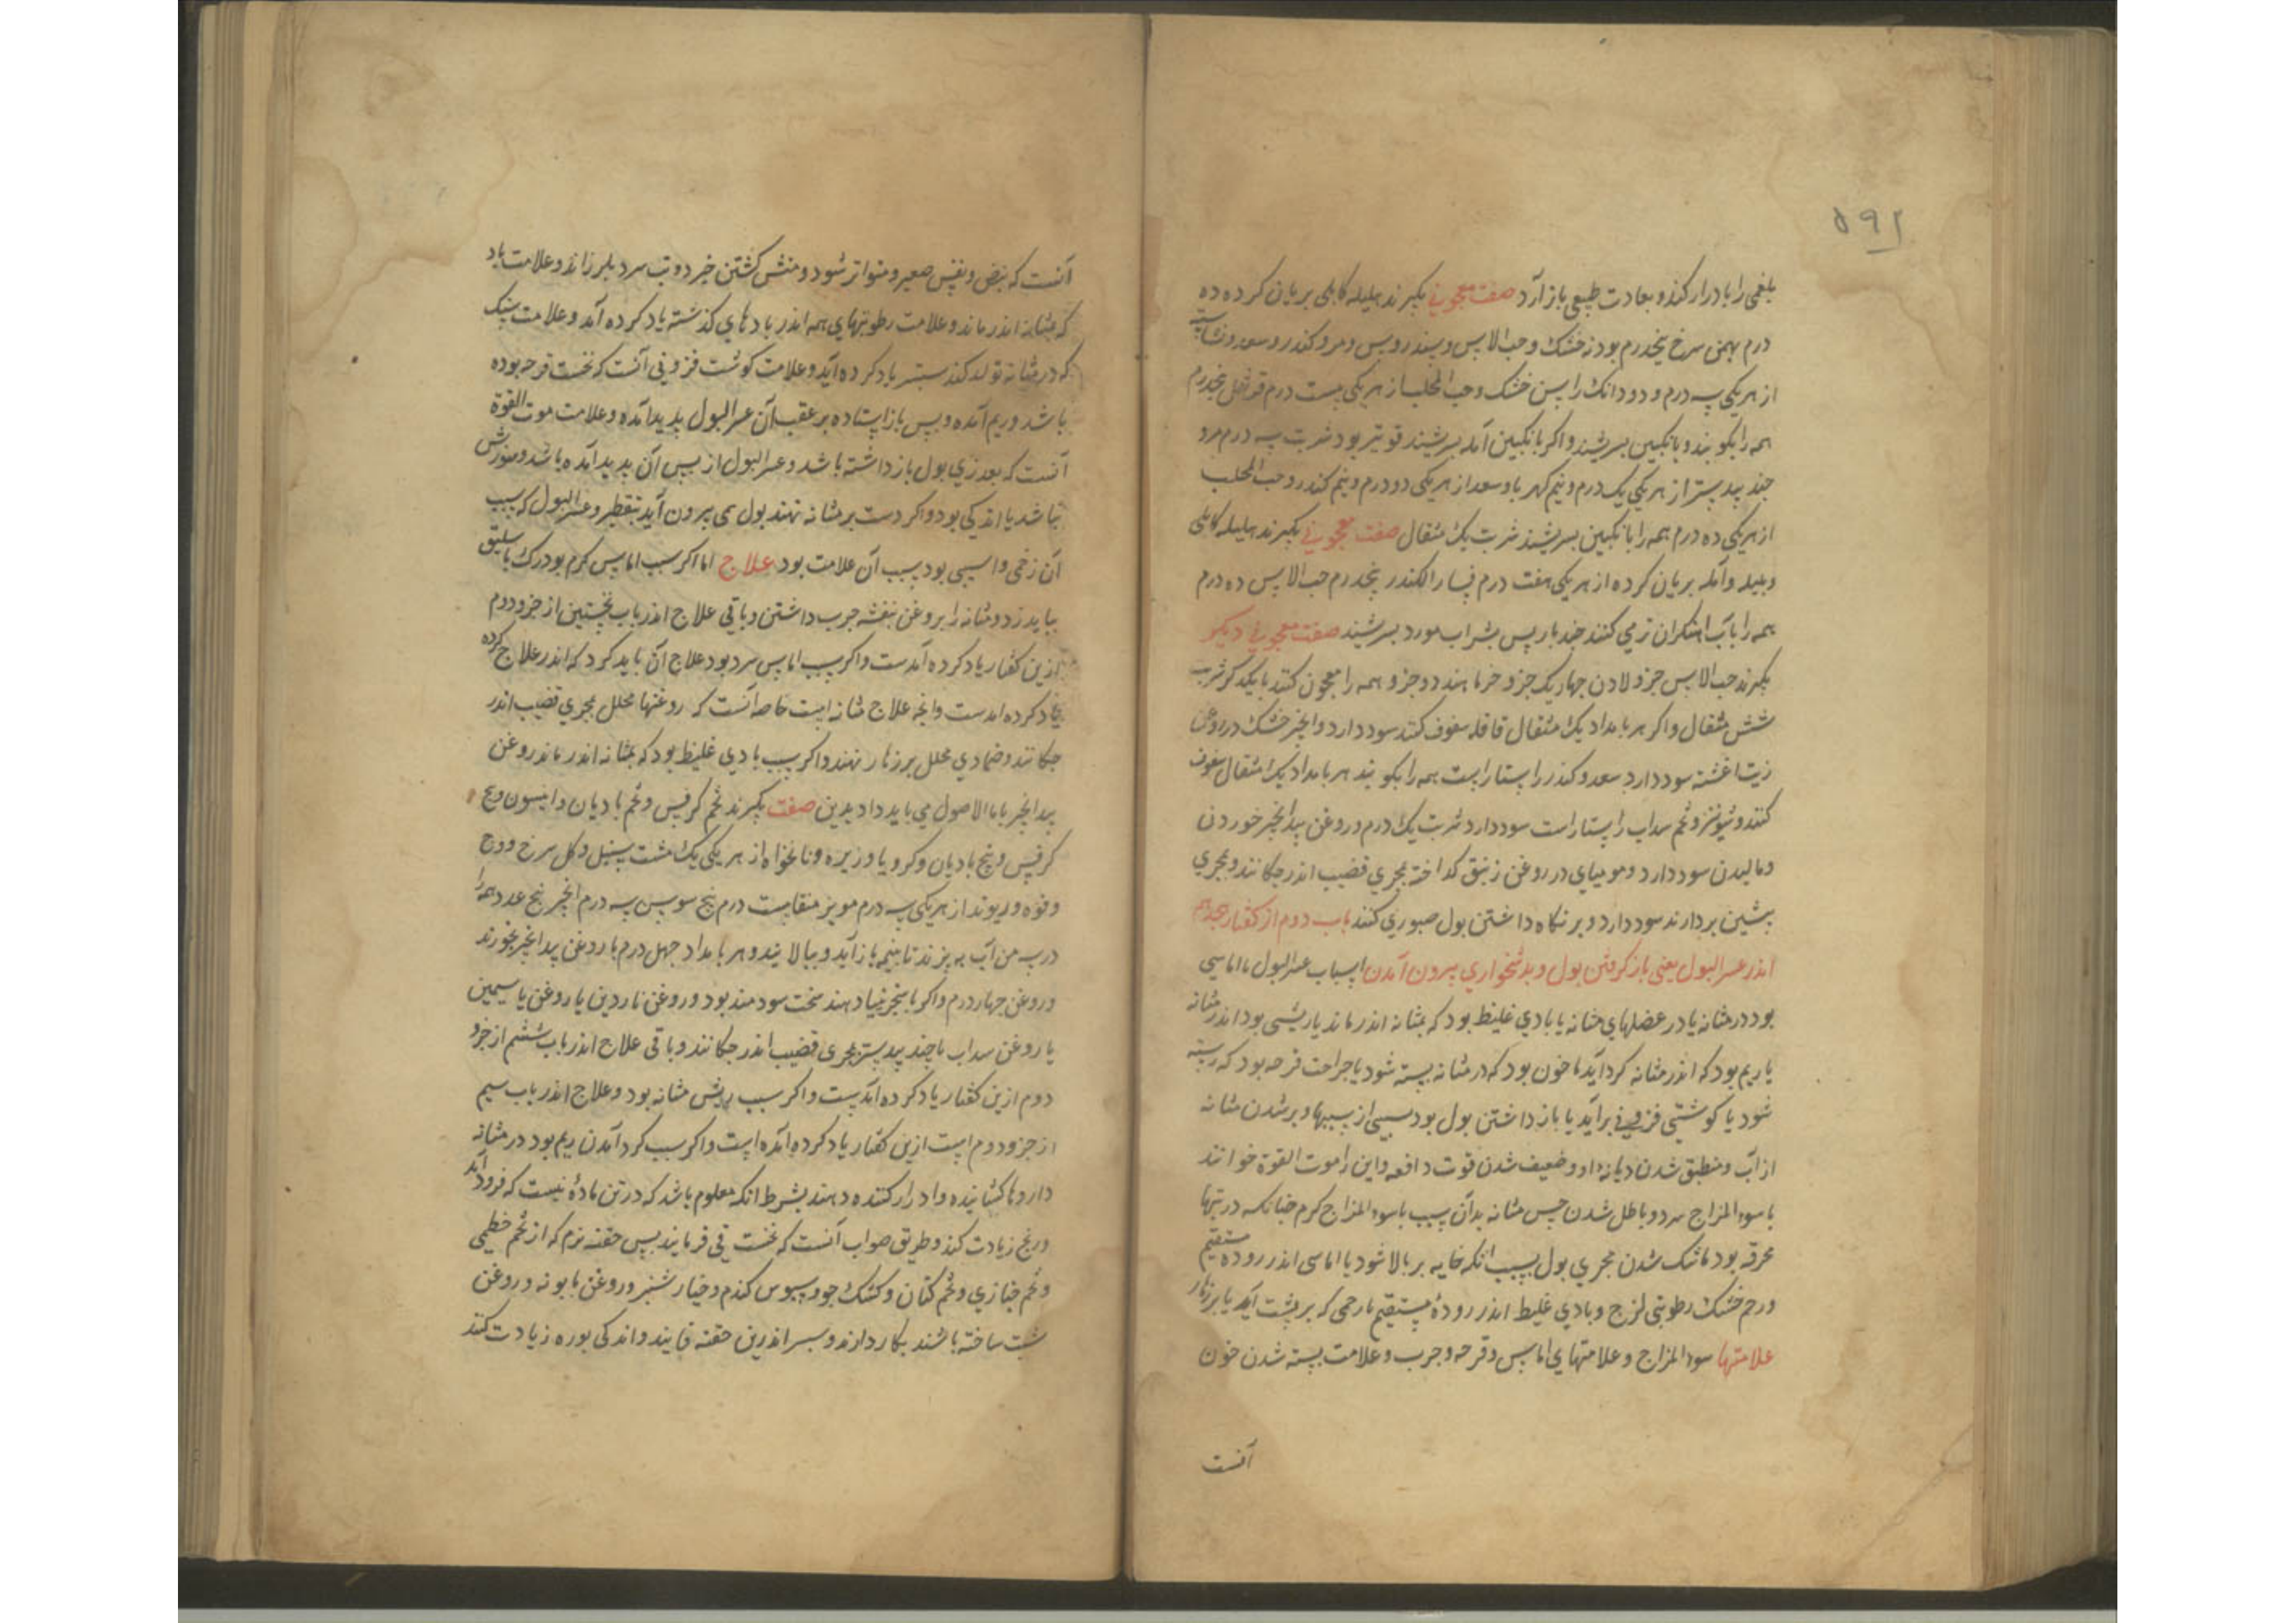 ۵۹۱
بلغمی را بادرار کند و بعادت طبیعی باز آرد صفت معجونی بکیرند هلیله کابلی بریان کرده ده
درم بهمن سرخ پنجدرم بودنه خشک و حب الاس و سندروس و مر و کندر و سعد و نشاسته
از هر یکی سه درم و دو دانک راسن خشک و حب المحلب از هر یکی بیست درم قرنفل پنجدرم
همه را بکوبند و بانکبین بسرشند و اکر بانکبین آمله بسرشند قویتر بود شربت سه درم مرو
جند بیدستر از هر یکی یک درم و نیم کهربا و سعد از هر یکی دو درم و نیم کندر و حب المحلب
از هر یکی ده درم همه را بانکبین بسرشند شربت یک مثقال صفت معجونی بکیرند هلیله کابلی
و بلیله و آمله بریان کرده از هر یکی هفت درم کندر پنجدرم حب الاس ده درم
همه را بآب تر می کنند چند بار پس بشراب مورد بسرشند صفت معجونی دیکر
بکیرند حب الاس جزو لادن چهار یک جزو خرما هند دو جزو همه را معجون کنند بایکدکر شربت
شش مثقال و اکر هر بامداد یک مثقال قاقله سفوف کنند سود دارد و انجیر خشک در روغن
زیت اغشته سود دارد سعد و کندر راستاراست همه را بکوبند هر بامداد یک مثقال سفوف
کنند و شونیز و تخم سداب راستاراست سود دارد شربت یک درم و روغن بیدانجیر خوردن
و مالیدن سود دارد و مومیای در روغن زنبق کداخته بمجری قضیب اندر چکانند و بمجری
پشین بردارند سود دارد و بر نکاه داشتن بول صبوری کنند باب دوم از کفتار هجدهم
اندر عسر البول یعنی باز کرفتن بول و بدشخواری بیرون آمدن اسباب عسر البول یا اماسی
بود در مثانه یا در عضلهای مثانه یا بادی غلیظ بود که بمثانه اندر ماند یا ریشی بود اندر مثانه
یا ریم بود که اندر مثانه کرد آید یا خون بود که در مثانه بسته شود یا جراحت قرحه بود که رسته
شود یا کوشتی فزونی برآید یا باز داشتن بول بود بسببی از سببها و پر شدن مثانه
از آب و منطبق شدن دهانه او و ضعیف شدن قوت دافعه و این را موت القوة خوانند
یا سوء المزاج سرد و باطل شدن حس مثانه بدان سبب یا سوء المزاج کرم چنانکه در تبها
محرقه بود یا تنک شدن مجری بول بسبب انکه خایه بر بالا شود یا اماسی اندر روده مستقیم
و رحم خشک رطوبتی لزج و بادی غلیظ اندر روده مستقیم یا رحمی که بر پشت آید یا بر زهار
علامتها سوء المزاج و علامتهای اماس و قرحه و جرب و علامت بسته شدن خون
آنست
آنست که نبض و نفس صغیر و متواتر شود و منش کشتن خیزد و تب سرد بلرزاند و علامت باد
که بمثانه اندر ماند و علامت رطوبتهای همه اندر بابهای کذشته یاد کرده آمد و علامت سنک
که در مثانه تولد کند سپستر یاد کرده آید و علامت کوشت فزونی آنست که نخست قرحه بوده
باشد و ریم آمده و پس باز ایستاده بر عقب آن عسر البول پدید آمده و علامت موت القوة
آنست که بعد زی بول باز داشته باشد و عسر البول از پس آن پدید آمده باشد و سوزش
نباشد یا اندکی بود و اکر دست بر مثانه نهند بول همی بیرون آید بتقطیر و عسر البول که سبب
آن زخمی و اسیبی بود سبب آن علامت بود علاج اما اکر سبب اماس کرم بود رک باسلیق
بباید زد و مثانه را بروغن بنفشه چرب داشتن و باقی علاج اندر باب نخستین از جزو دوم
ازین کفتار یاد کرده آمدست و اکر سبب اماس سرد بود علاج آن باید کرد که اندر علاج کرده
یاد کرده امدست و انچه علاج مثانه است خاصه آنست که روغنها محلل بمجری قضیب اندر
چکانند و ضمادی محلل بر زهار نهند و اکر سبب بادی غلیظ بود که بمثانه اندر ماند روغن
بیدانجیر با ماالاصول می باید داد بدین صفت بکیرند تخم کرفس و تخم بادیان و انیسون و بیخ
کرفس و بیخ بادیان و کرویا و زیره و نانخواه از هر یکی یک مشت سنبل و کل سرخ و وج
و فوه و ریوند از هر یکی سه درم مویز منقا بیست درم بیخ سوسن سه درم انجیر پنج عدد همه را
در سه من آب بپزند تا بنیمه باز آید و بپالایند و هر بامداد چهل درم با روغن بیدانجیر بخورند
و روغن چهار درم و اکر با سنجرنیا دهند سخت سودمند بود و روغن ناردین یا روغن یاسمین
یا روغن سداب با جند بیدستر بمجری قضیب اندر چکانند و باقی علاج اندر باب ششم از جزو
دوم ازین کفتار یاد کرده آمدست و اکر سبب ریش مثانه بود و علاج اندر باب سیم
از جزو دوم است ازین کفتار یاد کرده آمده است و اکر سبب کرد آمدن ریم بود در مثانه
داروها کشاینده و ادرار کننده دهند بشرط انکه معلوم باشد که در تن مادۀ نیست که فرود آید
و رنج زیادت کند و طریق صواب آنست که نخست قی فرمایند پس حقنه نرم که از تخم خطمی
و تخم خبازی و تخم کتان و کشک جو و سبوس کندم و خیارشنبر و روغن بابونه و روغن
شبت ساخته باشند بکار دارند و سپس اندرین حقنه فایند و اندکی بوره زیادت کنند